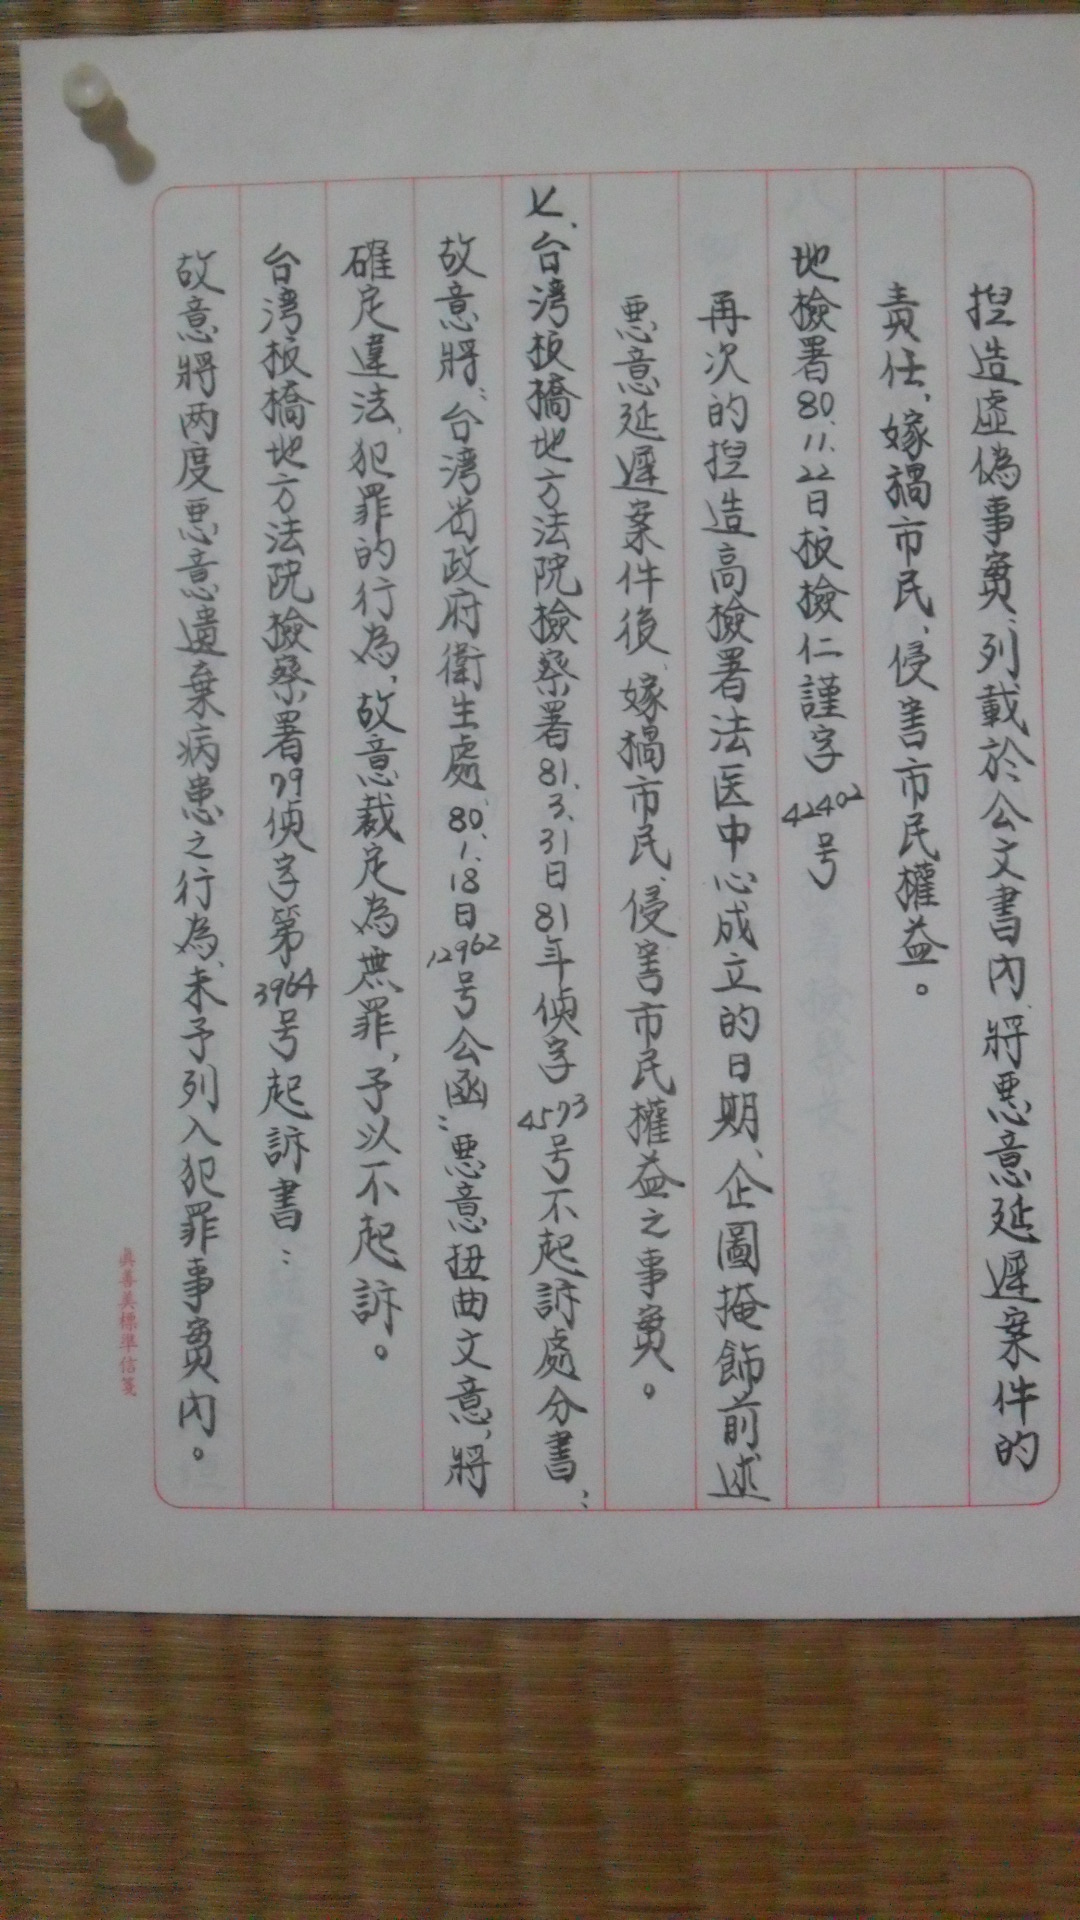 揑造虛偽事實、列載於公文書內、將悪意延遲案件的
責任、嫁禍市民、侵害市民權益。
地檢署80.11.22日板檢仁謹字42402号
再次的揑造高檢署法医中心成立的日期、企圖掩飾前述
悪意延遲案件後、嫁禍市民、侵害市民權益之事實。
七、台湾板橋地方法院檢察署81.3.31日81年偵字4573号不起訴處分書：
故意將：台湾省政府衛生處80.1.18日12962号公函：悪意扭曲文意，將
確定違法、犯罪的行為，故意裁定為無罪，予以不起訴。
台湾板橋地方法院檢察署79偵字第3964号起訴書：
故意將两度悪意遺棄病患之行為、未予列入犯罪事實內。
真善美標準信箋